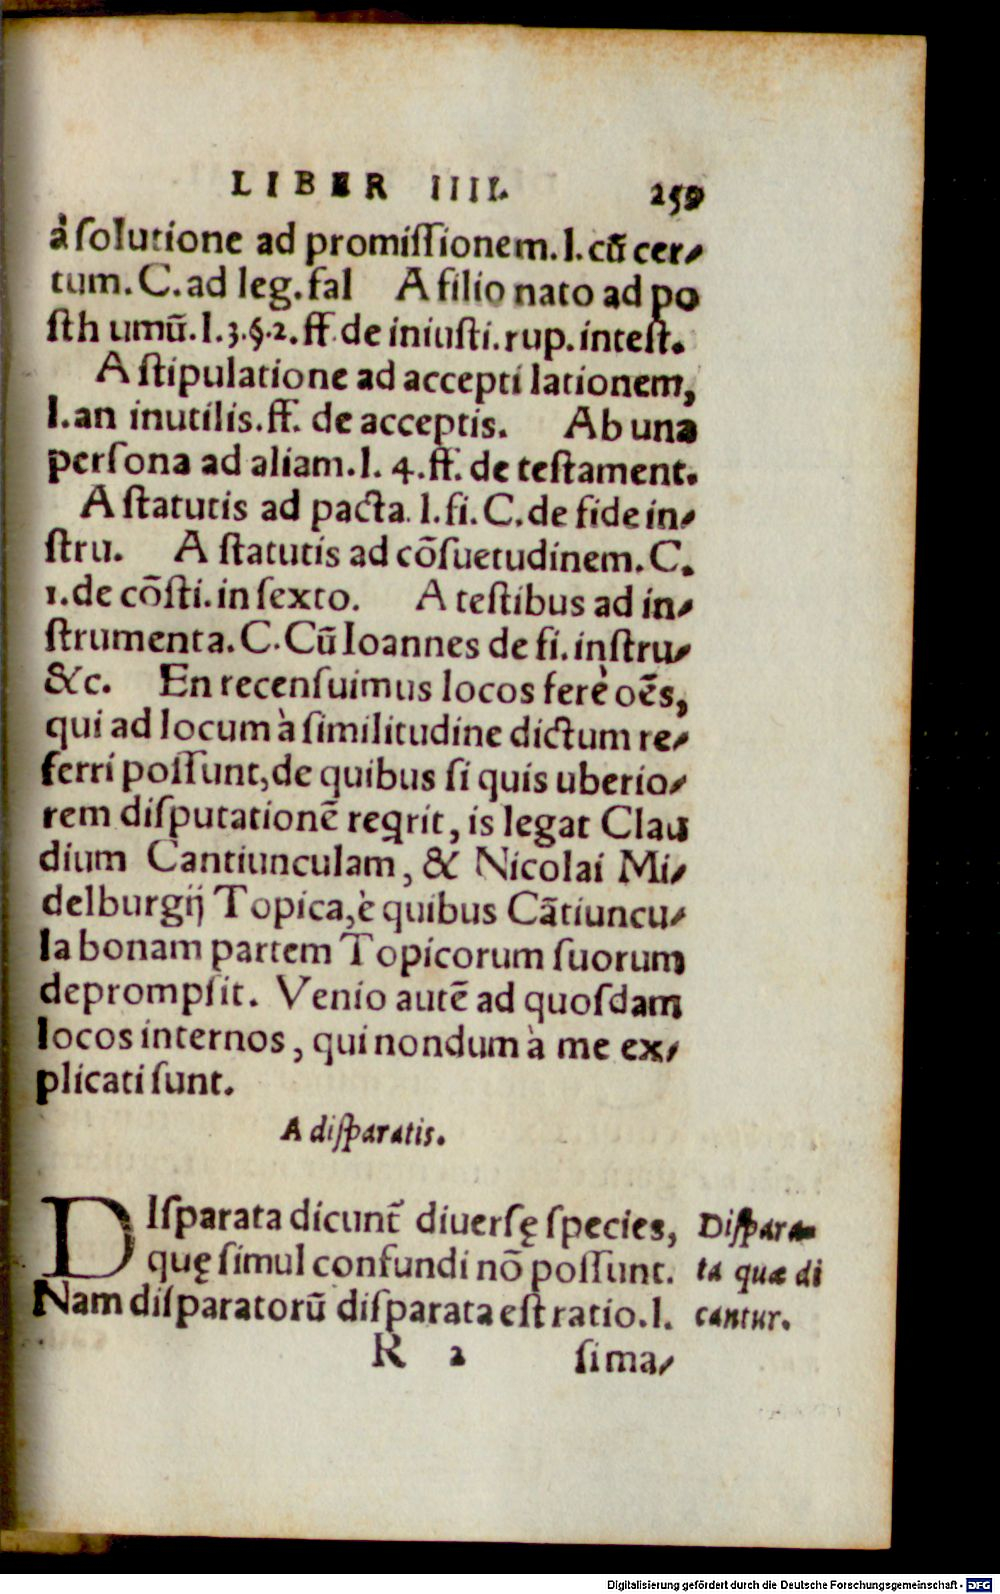 LIBER IIII. 259
à ſolutione ad promiſſionem. l. cū cer-
tum. C. ad leg. fal A filio nato ad po
ſth umū. l. 3. §. 2. ff. de iniuſti. rup. inteſt.
A ſtipulatione ad accepti lationem,
l. an inutilis. ff. de acceptis. Ab una
perſona ad aliam. l. 4. ff. de teſtament.
A ſtatutis ad pacta. l. fi. C. de fide in-
ſtru. A ſtatutis ad cōſuetudinem. C.
1. de cōſti. in ſexto. A teſtibus ad in-
ſtrumenta. C. Cū Ioannes de fi. inſtru-
&c. En recenſuimus locos ferè oēs,
qui ad locum à ſimilitudine dictum re-
ferri poſſunt, de quibus ſi quis uberio-
rem diſputationē reꝗrit, is legat Clau
dium Cantiunculam, & Nicolai Mi-
delburgij Topica, è quibus Cātiuncu-
la bonam partem Topicorum ſuorum
deprompſit. Venio autē ad quoſdam
locos internos, qui nondum à me ex-
plicati ſunt.
A diſparatis.
DIſparata dicunt̄ diuerſę ſpecies,
quę ſimul confundi nō poſſunt.
Nam diſparatorū diſparata eſt ratio. l.
Diſpara-
ta quæ di
cantur.
R 2 ſima-
Digitalisierung gefördert durch die Deutsche Forschungsgemeinschaft - DFG